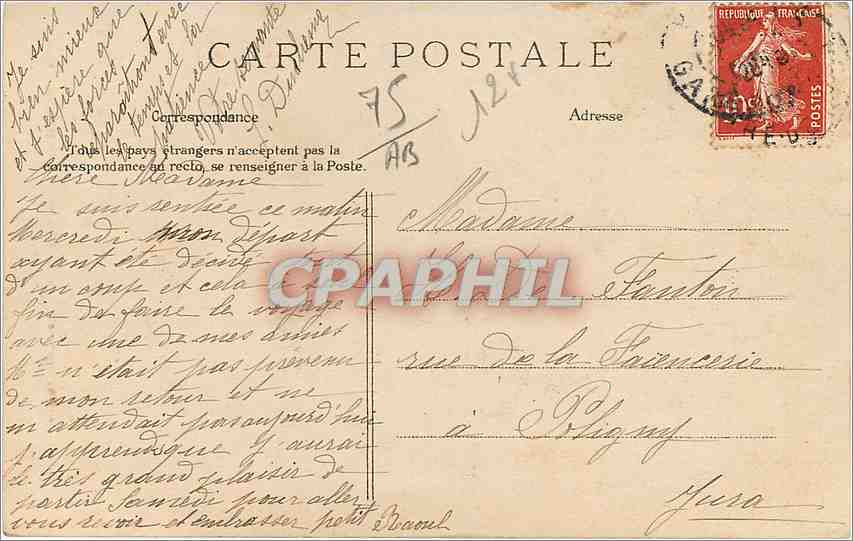 CARTE POSTALE
Correspondance
Adresse
Tous les pays étrangers n'acceptent pas la
correspondance au recto, se renseigner à la Poste.
RÉPUBLIQUE FRANÇAISE
POSTES
75
AB
CPAPHIL
Chère Madame
Je suis rentrée ce matin
Mercredi mon départ
ayant été décidé tout
d'un coup et cela
fin de faire le voyage
avec une de mes amies
Mme n'était pas prevenu
de mon retour et ne
m'attendait pas aujourd'hui
j'apprends que j'aurai
le très grand plaisir de
partir Samedi pour aller
vous revoir et embrasser petit Raoul
Je suis
bien mieux
et j'espère que
les forces
reparaîtront avec
le temps et la
patience
Votre
Madame
Fanton
rue de la Faiencerie
à Poligny
Jura